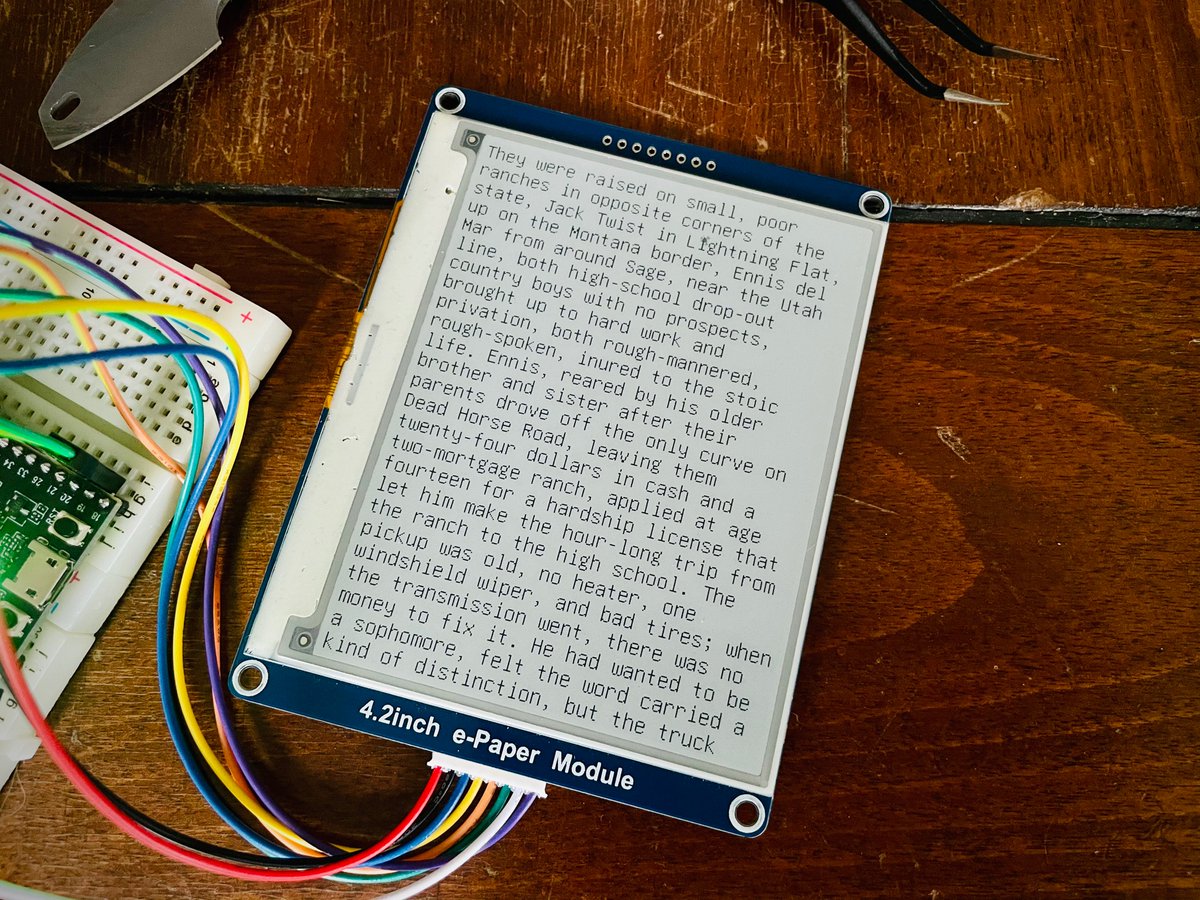 They were raised on small, poor
ranches in opposite corners of the
state, Jack Twist in Lightning Flat,
up on the Montana border, Ennis del
Mar from around Sage, near the Utah
line, both high-school drop-out
country boys with no prospects,
brought up to hard work and
privation, both rough-mannered,
rough-spoken, inured to the stoic
life. Ennis, reared by his older
brother and sister after their
parents drove off the only curve on
Dead Horse Road, leaving them
twenty-four dollars in cash and a
two-mortgage ranch, applied at age
fourteen for a hardship license that
let him make the hour-long trip from
the ranch to the high school. The
pickup was old, no heater, one
windshield wiper, and bad tires; when
the transmission went, there was no
money to fix it. He had wanted to be
a sophomore, felt the word carried a
kind of distinction, but the truck
4.2inch e-Paper Module